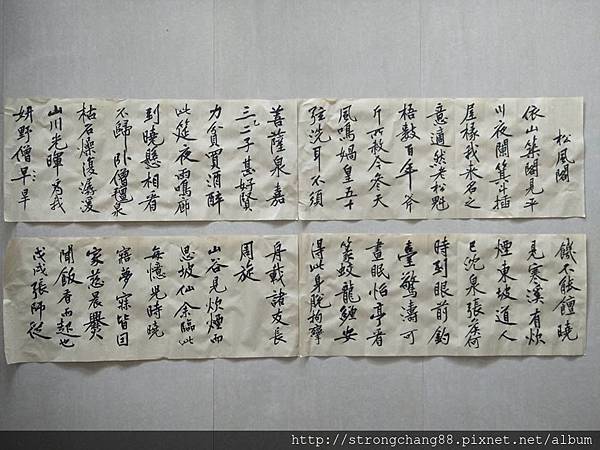 松風閣
依山築閣見平
川夜闌箕斗插
屋椽我來名之
意適然老松魁
梧數百年斧
斤所赦今參天
風鳴媧皇五十
弦洗耳不須
菩薩泉嘉
三二子甚好賢
力貧買酒醉
此筵夜雨鳴廊
到曉懸相看
不歸臥僧氈泉
枯石燥復潺湲
山川光暉為我
妍野僧早旱
饑不能饘曉
見寒溪有炊
煙東坡道人
已沈泉張侯何
時到眼前釣
臺驚濤可
晝眠怡亭看
篆蛟龍纏安
得此身脫拘攣
舟載諸友長
周旋
山谷見炊煙而
思坡仙余臨此
每憶兒時曉
寤夢寐皆因
家慈晨爨
聞飯香而起也
戊戌張師從
http://strongchang88.pixnet.net/album